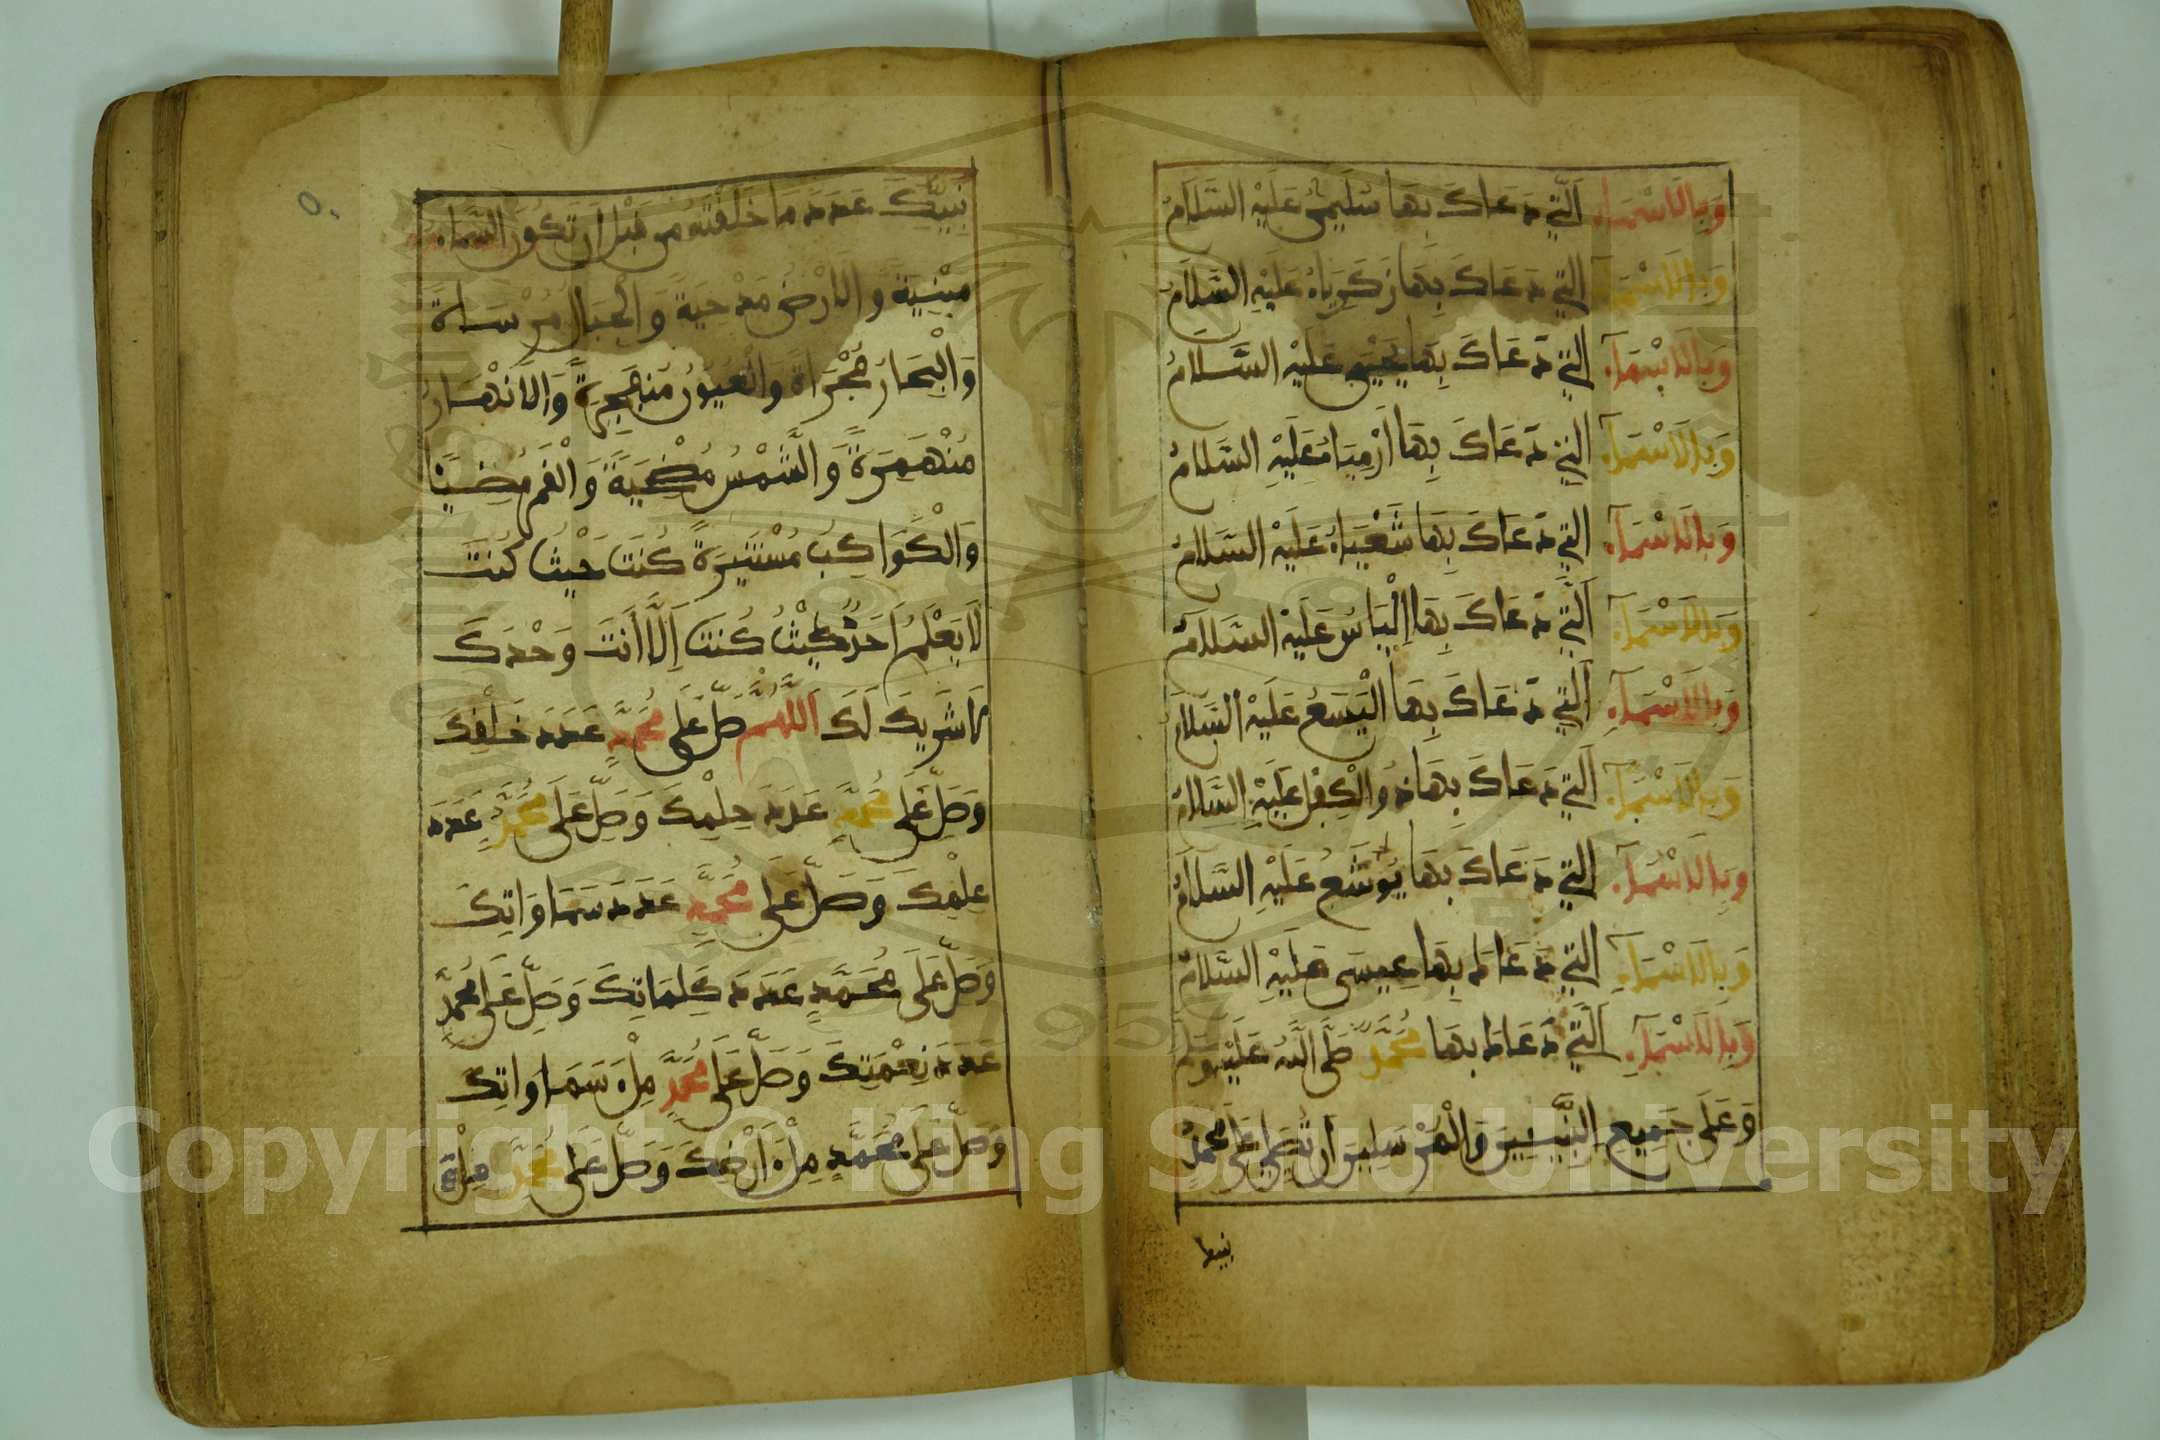 وَبِالْأَسْمَاءِ الَّتِي دَعَاكَ بِهَا سُلَيْمَنُ عَلَيْهِ السَّلَامُ
وَبِالْأَسْمَاءِ الَّتِي دَعَاكَ بِهَا زَكَرِيَّاءُ عَلَيْهِ السَّلَامُ
وَبِالْأَسْمَاءِ الَّتِي دَعَاكَ بِهَا يَحْيَى عَلَيْهِ السَّلَامُ
وَبِالْأَسْمَاءِ الَّتِي دَعَاكَ بِهَا أَرْمِيَاءُ عَلَيْهِ السَّلَامُ
وَبِالْأَسْمَاءِ الَّتِي دَعَاكَ بِهَا شَعْيَاءُ عَلَيْهِ السَّلَامُ
وَبِالْأَسْمَاءِ الَّتِي دَعَاكَ بِهَا إِلْيَاسُ عَلَيْهِ السَّلَامُ
وَبِالْأَسْمَاءِ الَّتِي دَعَاكَ بِهَا الْيَسَعُ عَلَيْهِ السَّلَامُ
وَبِالْأَسْمَاءِ الَّتِي دَعَاكَ بِهَا ذُو الْكِفْلِ عَلَيْهِ السَّلَامُ
وَبِالْأَسْمَاءِ الَّتِي دَعَاكَ بِهَا يُوشَعُ عَلَيْهِ السَّلَامُ
وَبِالْأَسْمَاءِ الَّتِي دَعَاكَ بِهَا عِيسَى عَلَيْهِ السَّلَامُ
وَبِالْأَسْمَاءِ الَّتِي دَعَاكَ بِهَا مُحَمَّدٌ صَلَّى اللَّهُ عَلَيْهِ وَسَلَّمَ
وَعَلَى جَمِيعِ النَّبِيِّينَ وَالْمُرْسَلِينَ أَنْ تُصَلِّيَ عَلَى مُحَمَّدٍ
نبيك
نَبِيِّكَ عَدَدَ مَا خَلَقْتَهُ مِنْ قَبْلِ أَنْ تَكُونَ السَّمَاءُ
مَبْنِيَّةً وَالْأَرْضُ مَدْحِيَّةً وَالْجِبَالُ مُرْسَاةً
وَالْبِحَارُ مُجْرَاةً وَالْعُيُونُ مُنْفَجِرَةً وَالْأَنْهَارُ
مُنْهَمِرَةً وَالشَّمْسُ مُضْحِيَةً وَالْقَمَرُ مُضِيئًا
وَالْكَوَاكِبُ مُسْتَنِيرَةً كُنْتَ حَيْثُ كُنْتَ
لَا يَعْلَمُ أَحَدٌ حَيْثُ كُنْتَ إِلَّا أَنْتَ وَحْدَكَ
لَا شَرِيكَ لَكَ اللَّهُمَّ صَلِّ عَلَى مُحَمَّدٍ عَدَدَ خَلْقِكَ
وَصَلِّ عَلَى مُحَمَّدٍ عَدَدَ حِلْمِكَ وَصَلِّ عَلَى مُحَمَّدٍ عَدَدَ
عِلْمِكَ وَصَلِّ عَلَى مُحَمَّدٍ عَدَدَ سَمَاوَاتِكَ
وَصَلِّ عَلَى مُحَمَّدٍ عَدَدَ كَلِمَاتِكَ وَصَلِّ عَلَى مُحَمَّدٍ
عَدَدَ نِعْمَتِكَ وَصَلِّ عَلَى مُحَمَّدٍ مِلْءَ سَمَاوَاتِكَ
وَصَلِّ عَلَى مُحَمَّدٍ مِلْءَ أَرْضِكَ وَصَلِّ عَلَى مُحَمَّدٍ مِلْءَ
Copyright © King Saud University
1957